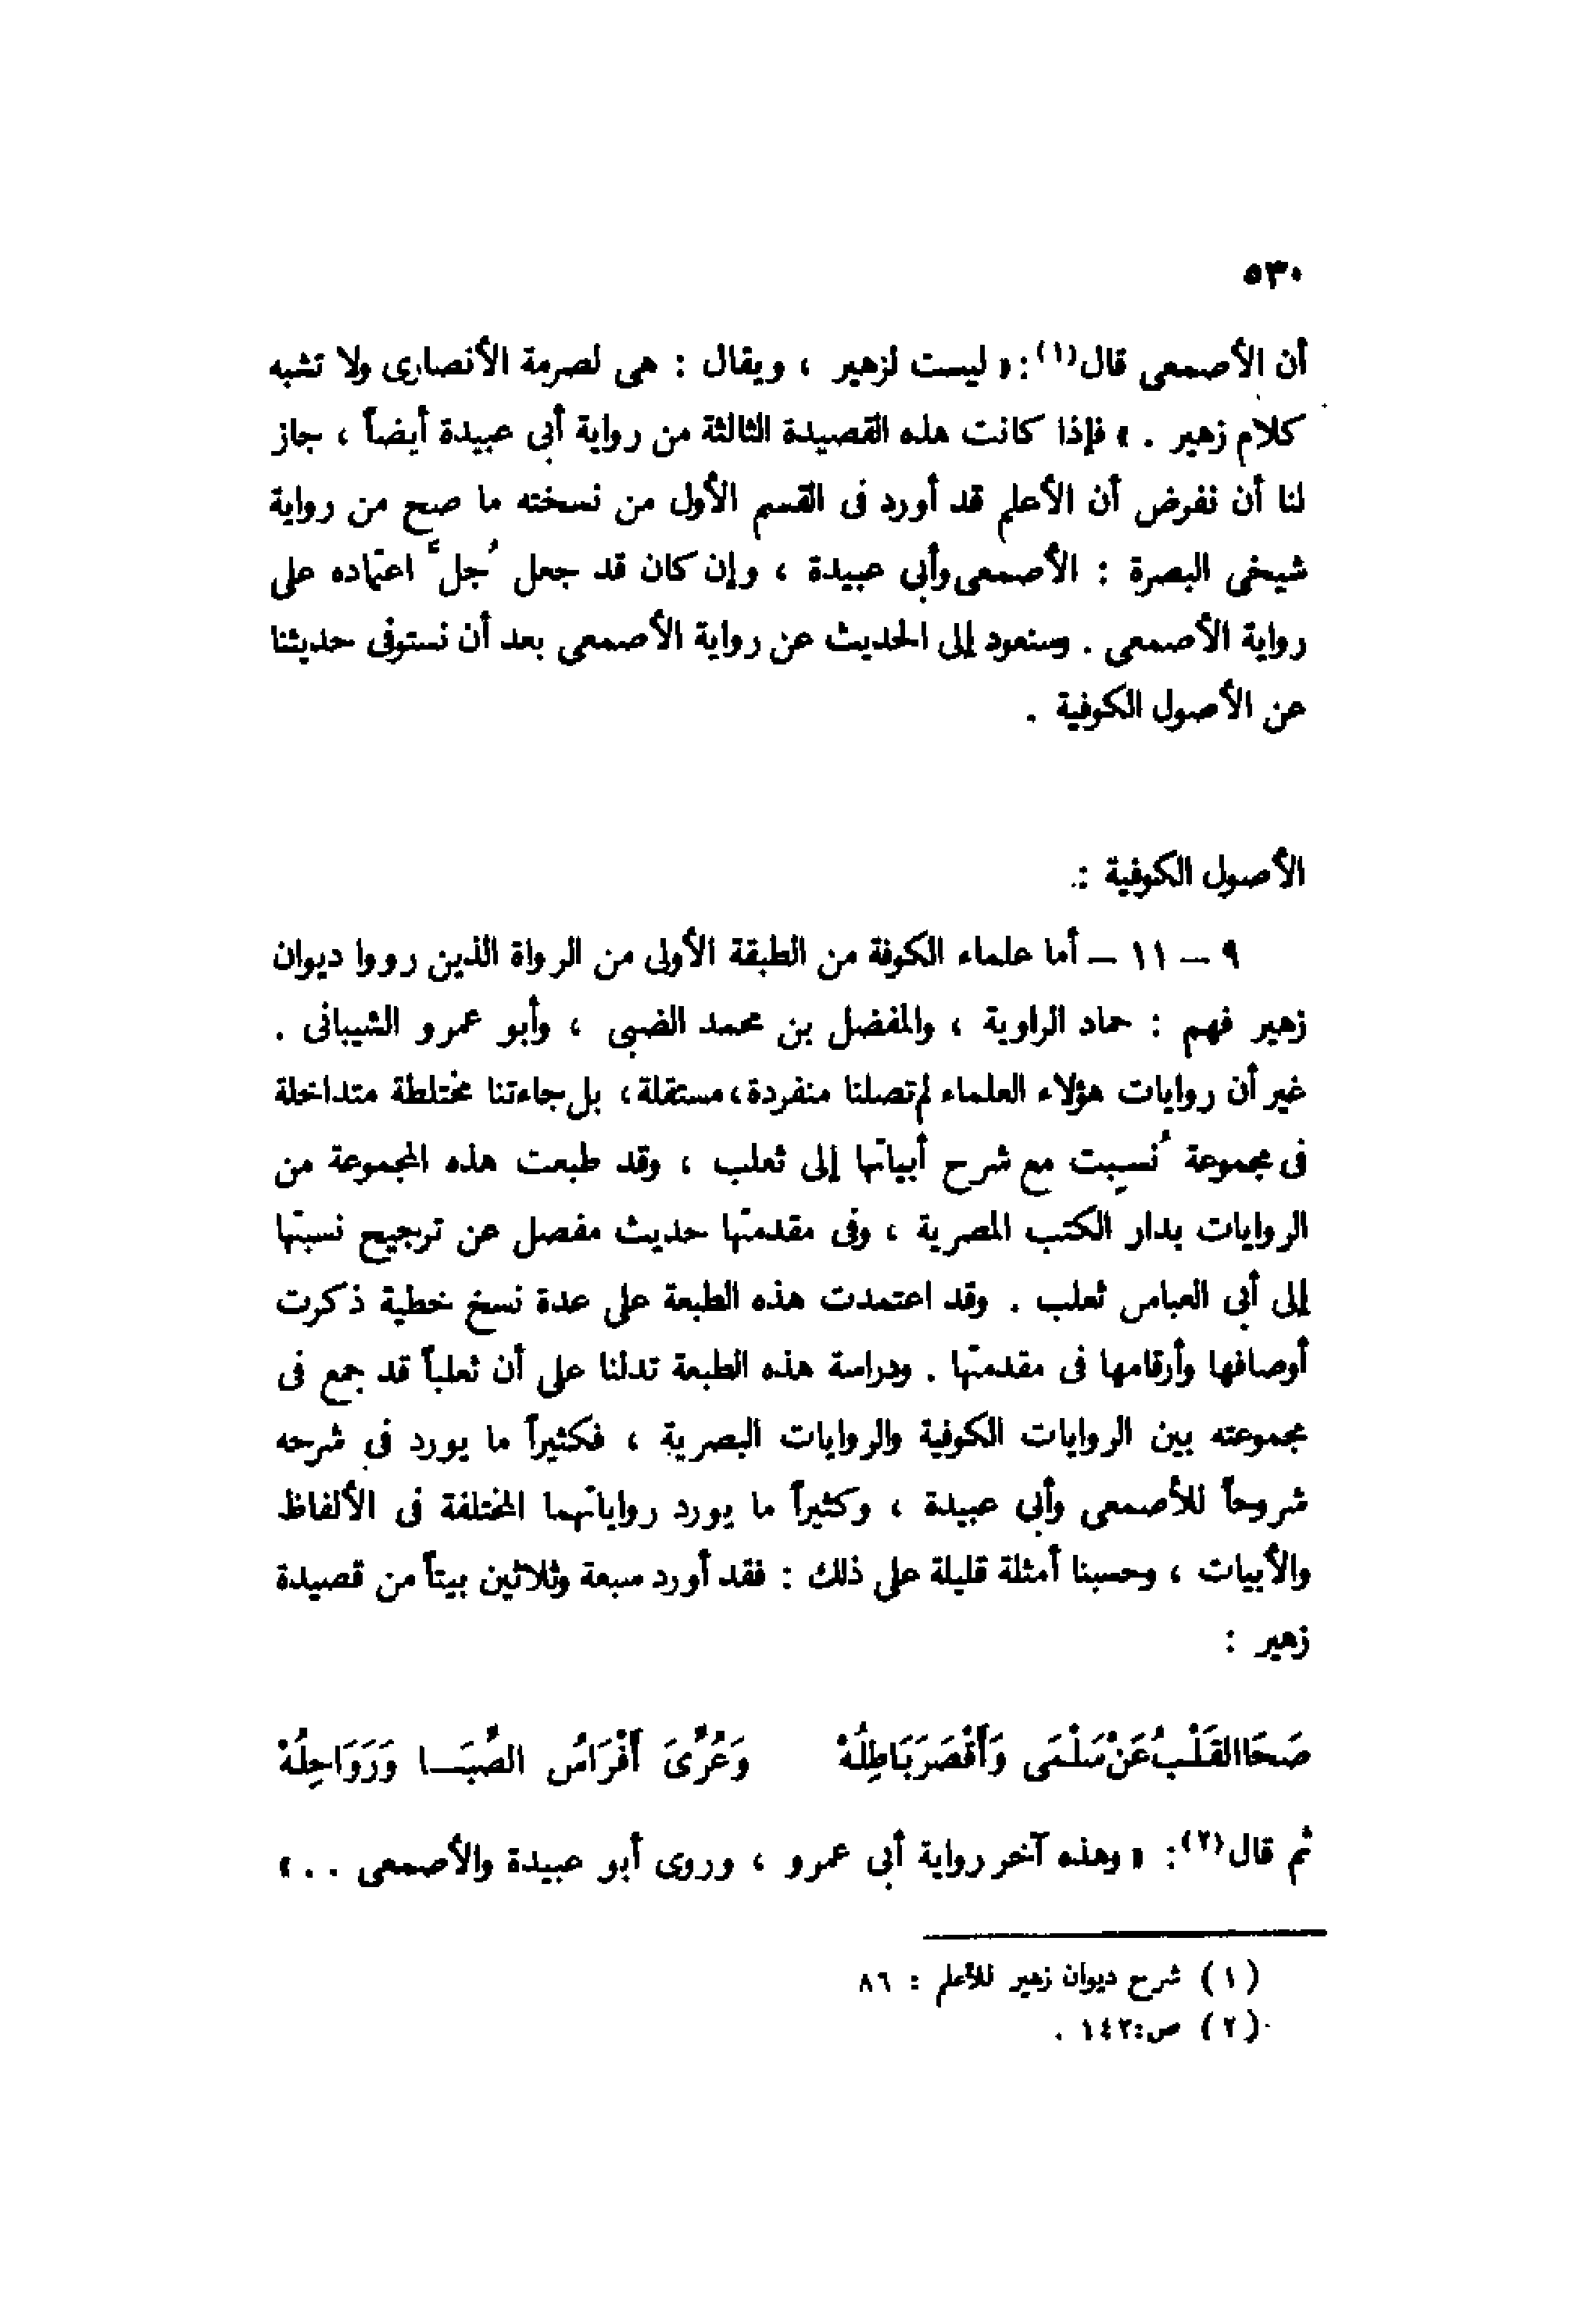 ٥٣٠
أن الأصمعى قال(١): « ليست لزهير ، ويقال : هى لصرمة الأنصارى ولا تشبه
كلام زهير . » فإذا كانت هذه القصيدة الثالثة من رواية أبى عبيدة أيضاً ، جاز
لنا أن نفرض أن الأعلم قد أورد فى القسم الأول من نسخته ما صح من رواية
شيخى البصرة : الأصمعى وأبى عبيدة ، وإن كان قد جعل جُلَّ اعتماده على
رواية الأصمعى . وسنعود إلى الحديث عن رواية الأصمعى بعد أن نستوفى حديثنا
عن الأصول الكوفية .
الأصول الكوفية :
٩ – ١١ – أما علماء الكوفة من الطبقة الأولى من الرواة الذين رووا ديوان
زهير فهم : حماد الراوية ، والمفضل بن محمد الضبى ، وأبو عمرو الشيبانى .
غير أن روايات هؤلاء العلماء لم تصلنا منفردة ، مستقلة ، بل جاءتنا مختلطة متداخلة
فى مجموعة نُسِبت مع شرح أبياتها إلى ثعلب ، وقد طبعت هذه المجموعة من
الروايات بدار الكتب المصرية ، وفى مقدمتها حديث مفصل عن ترجيح نسبتها
إلى أبى العباس ثعلب . وقد اعتمدت هذه الطبعة على عدة نسخ خطية ذكرت
أوصافها وأرقامها فى مقدمتها . ودراسة هذه الطبعة تدلنا على أن ثعلباً قد جمع فى
مجموعته بين الروايات الكوفية والروايات البصرية ، فكثيراً ما يورد فى شرحه
شروحاً للأصمعى وأبى عبيدة ، وكثيراً ما يورد رواياتهما المختلفة فى الألفاظ
والأبيات ، وحسبنا أمثلة قليلة على ذلك : فقد أورد سبعة وثلاثين بيتاً من قصيدة
زهير :
صَحَا القَلْبُ عَنْ سَلْمَى وَأَقْصَرَ بَاطِلُهْ وَعُرِّىَ أَفْرَاسُ الصِّبَا وَرَوَاحِلُهْ
ثم قال(٢): « وهذه آخر رواية أبى عمرو ، وروى أبو عبيدة والأصمعى . . »
(١) شرح ديوان زهير للأعلم : ٨٦
(٢) ص:١٤٢ .